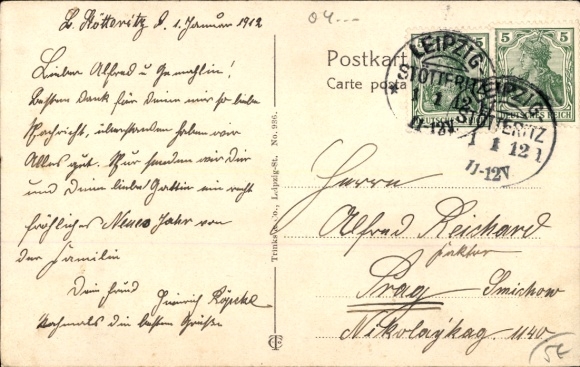 L. Stötteritz d. 1. Januar 1912
Lieber Alfred u Gemahlin!
Besten Dank für Deine mir so liebe
Nachricht, überstanden haben wir
Alles gut. Nur senden wir Dir
und Deine liebe Gattin ein recht
fröhliches Neues Jahr von
der Familie
Dein Freund
Heinrich Köpcke
Nochmals die besten Grüße
Trinks & Co., Leipzig-St. No. 936.
04...
Postkarte
Carte postale
5 5
DEUTSCHES REICH
LEIPZIG
STÖTTERITZ
1 1 12 1
11-12V
LEIPZIG
STÖTTERITZ
1 1 12 1
11-12V
Herrn
Alfred Reichard
Faktor
Prag Smichow
Nikolaÿkag. 1140
54